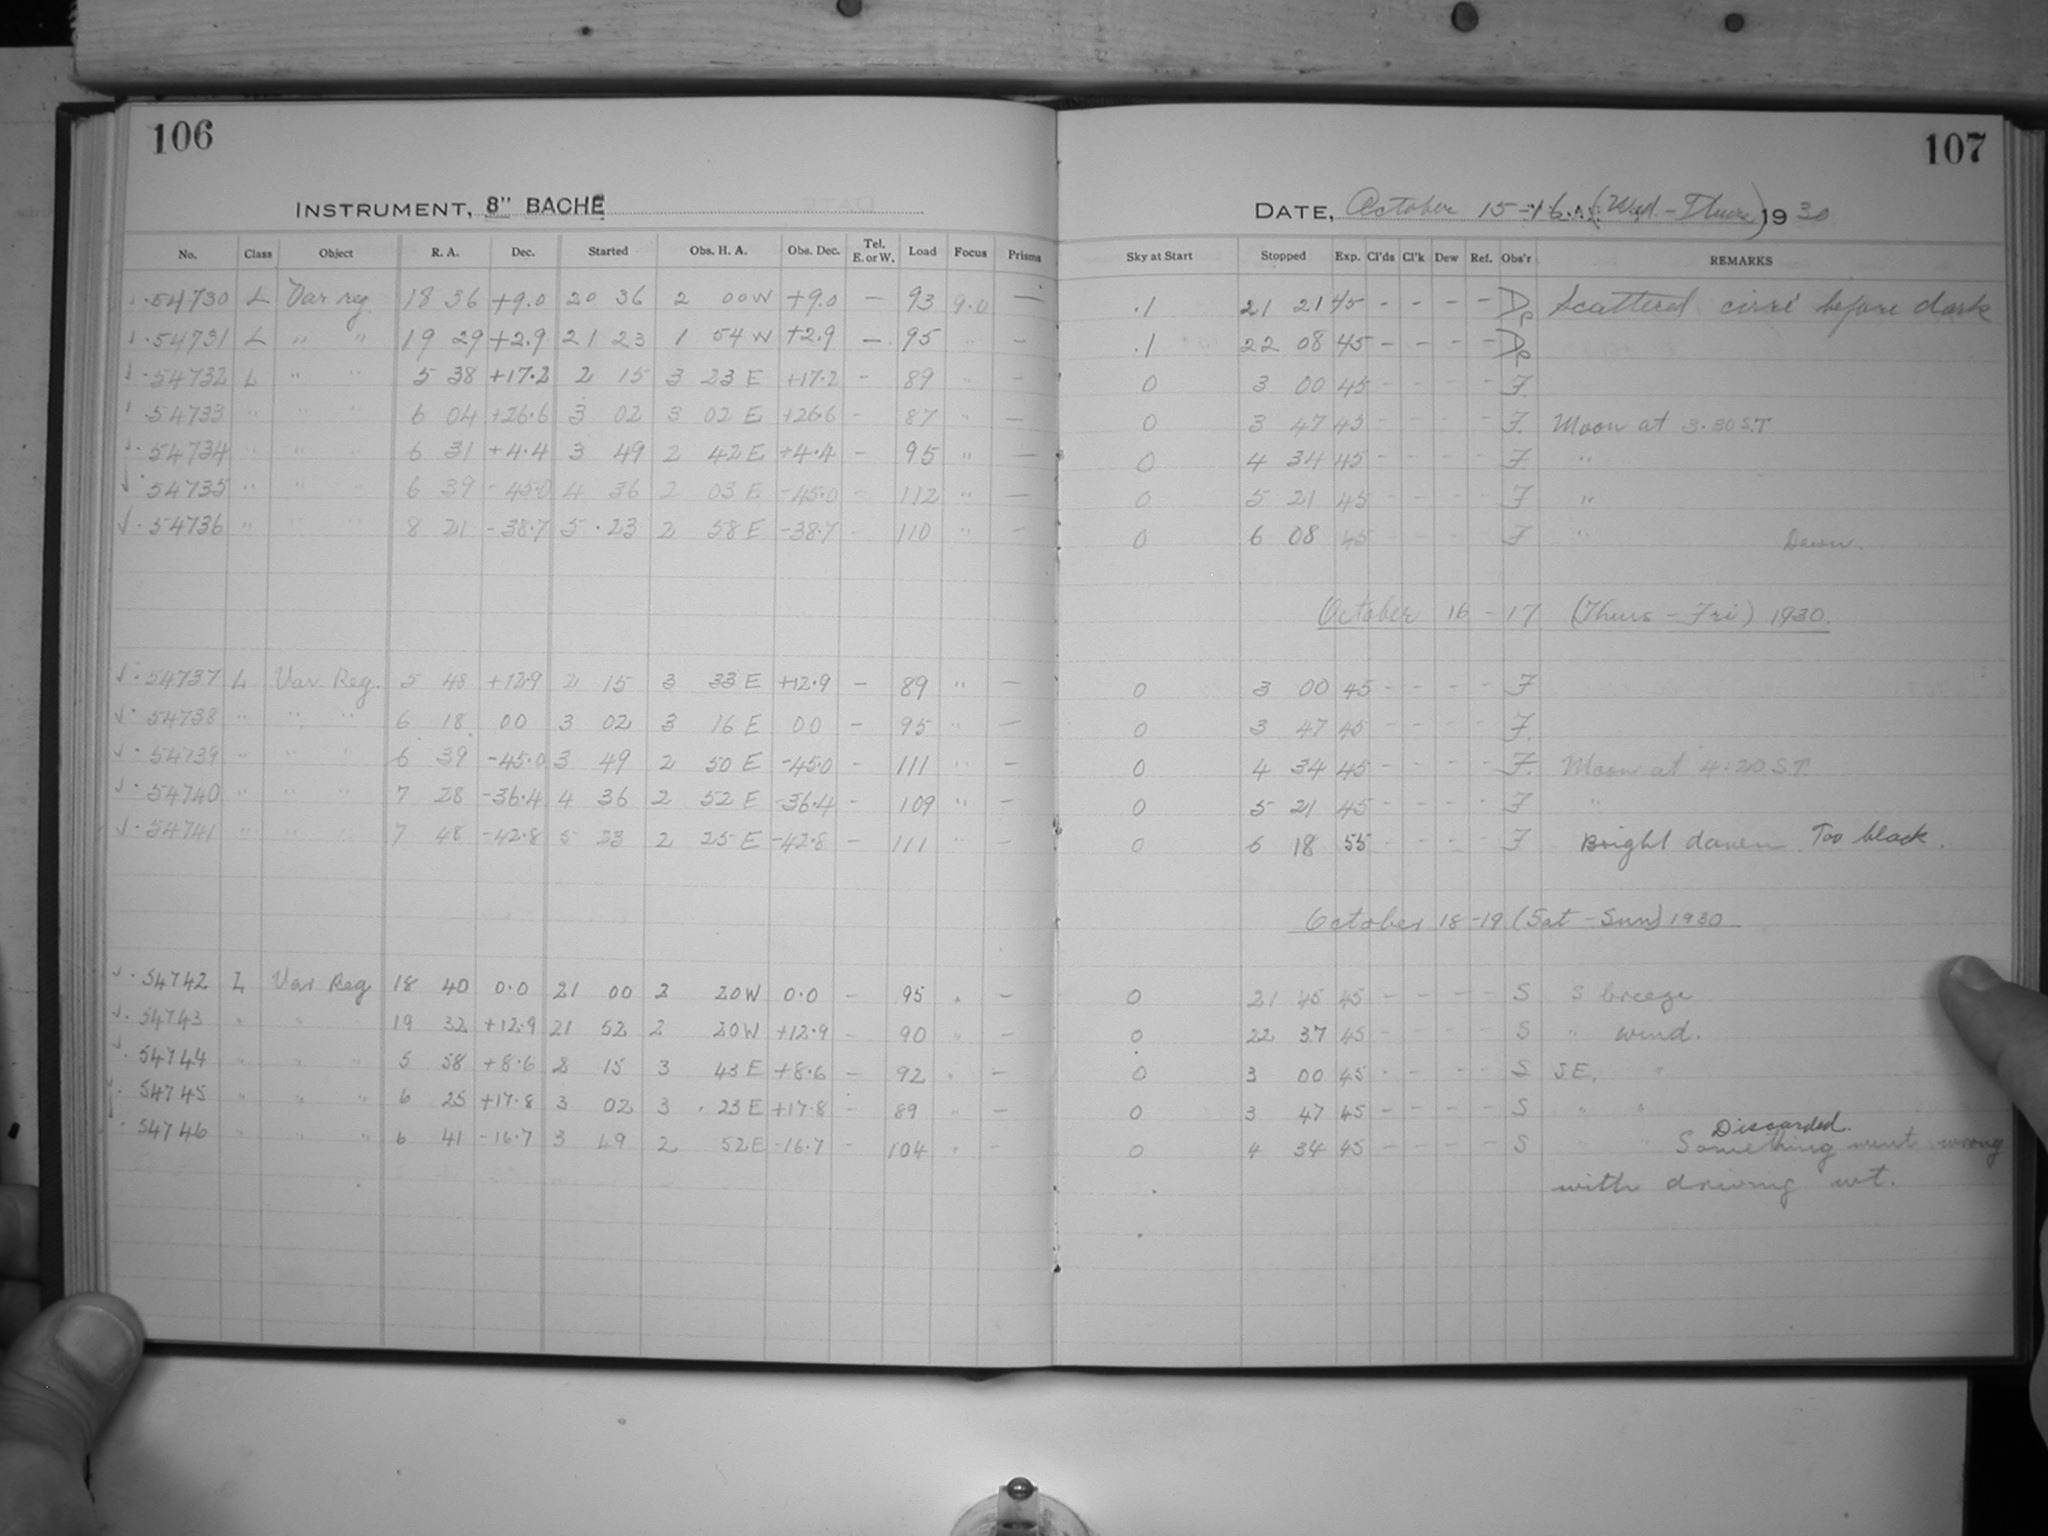 106
INSTRUMENT, 8" BACHE
No. Class Object R. A. Dec. Started Obs. H. A. Obs. Dec. Tel. E. or W. Load Focus Prisms
54730 L Var reg 18 36 +9.0 20 36 2 00 W +9.0 – 93 9.0 –
54731 L " " 19 29 +2.9 21 23 1 54 W +2.9 – 95 " –
54732 L " " 5 38 +17.2 2 15 3 23 E +17.2 – 89 " –
54733 " " " 6 04 +26.6 3 02 3 02 E +26.6 – 87 " –
54734 " " " 6 31 +4.4 3 49 2 42 E +4.4 – 95 " –
54735 " " " 6 39 -45.0 4 36 2 03 E -45.0 – 112 " –
54736 " " " 8 21 -38.7 5 23 2 58 E -38.7 – 110 " –
54737 L Var Reg. 5 48 +12.9 2 15 3 33 E +12.9 – 89 " –
54738 " " " 6 18 00 3 02 3 16 E 00 – 95 " –
54739 " " " 6 39 -45.0 3 49 2 50 E -45.0 – 111 " –
54740 " " " 7 28 -36.4 4 36 2 52 E -36.4 – 109 " –
54741 " " " 7 48 -42.8 5 23 2 25 E -42.8 – 111 " –
54742 L Var Reg 18 40 0.0 21 00 2 20 W 0.0 – 95 " –
54743 " " 19 32 +12.9 21 52 2 20 W +12.9 – 90 " –
54744 " " " 5 58 +8.6 2 15 3 43 E +8.6 – 92 " –
54745 " " " 6 25 +17.8 3 02 3 23 E +17.8 – 89 " –
54746 " " " 6 41 -16.7 3 49 2 52 E -16.7 – 104 " –
107
DATE, October 15-16 (Wed - Thurs) 1930
Sky at Start Stopped Exp. Cl'ds Cl'k Dew Ref. Obs'r REMARKS
.1 21 21 45 - - - - Scattered cirri before dark
.1 22 08 45 - - - -
0 3 00 45 - - - - F.
0 3 47 45 - - - - F. Moon at 3.30 S.T
0 4 34 45 - - - - F "
0 5 21 45 - - - - F "
0 6 08 45 - - - - F " Dawn.
October 16 - 17 (Thurs - Fri) 1930.
0 3 00 45 - - - - F
0 3 47 45 - - - - F.
0 4 34 45 - - - - F. Moon at 4.20 S.T.
0 5 21 45 - - - - F "
0 6 18 55 - - - - F Bright dawn Too black.
October 18-19 (Sat - Sun) 1930
0 21 45 45 - - - - S S breeze
0 22 37 45 - - - - S " wind.
0 3 00 45 - - - - S SE. "
0 3 47 45 - - - - S " "
Discarded.
0 4 34 45 - - - - S " " Something went wrong
with driving wt.